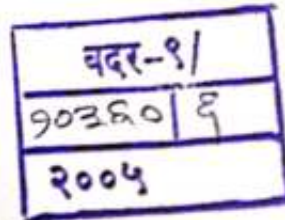 वदर-९/
१०३६० | ६
२००५